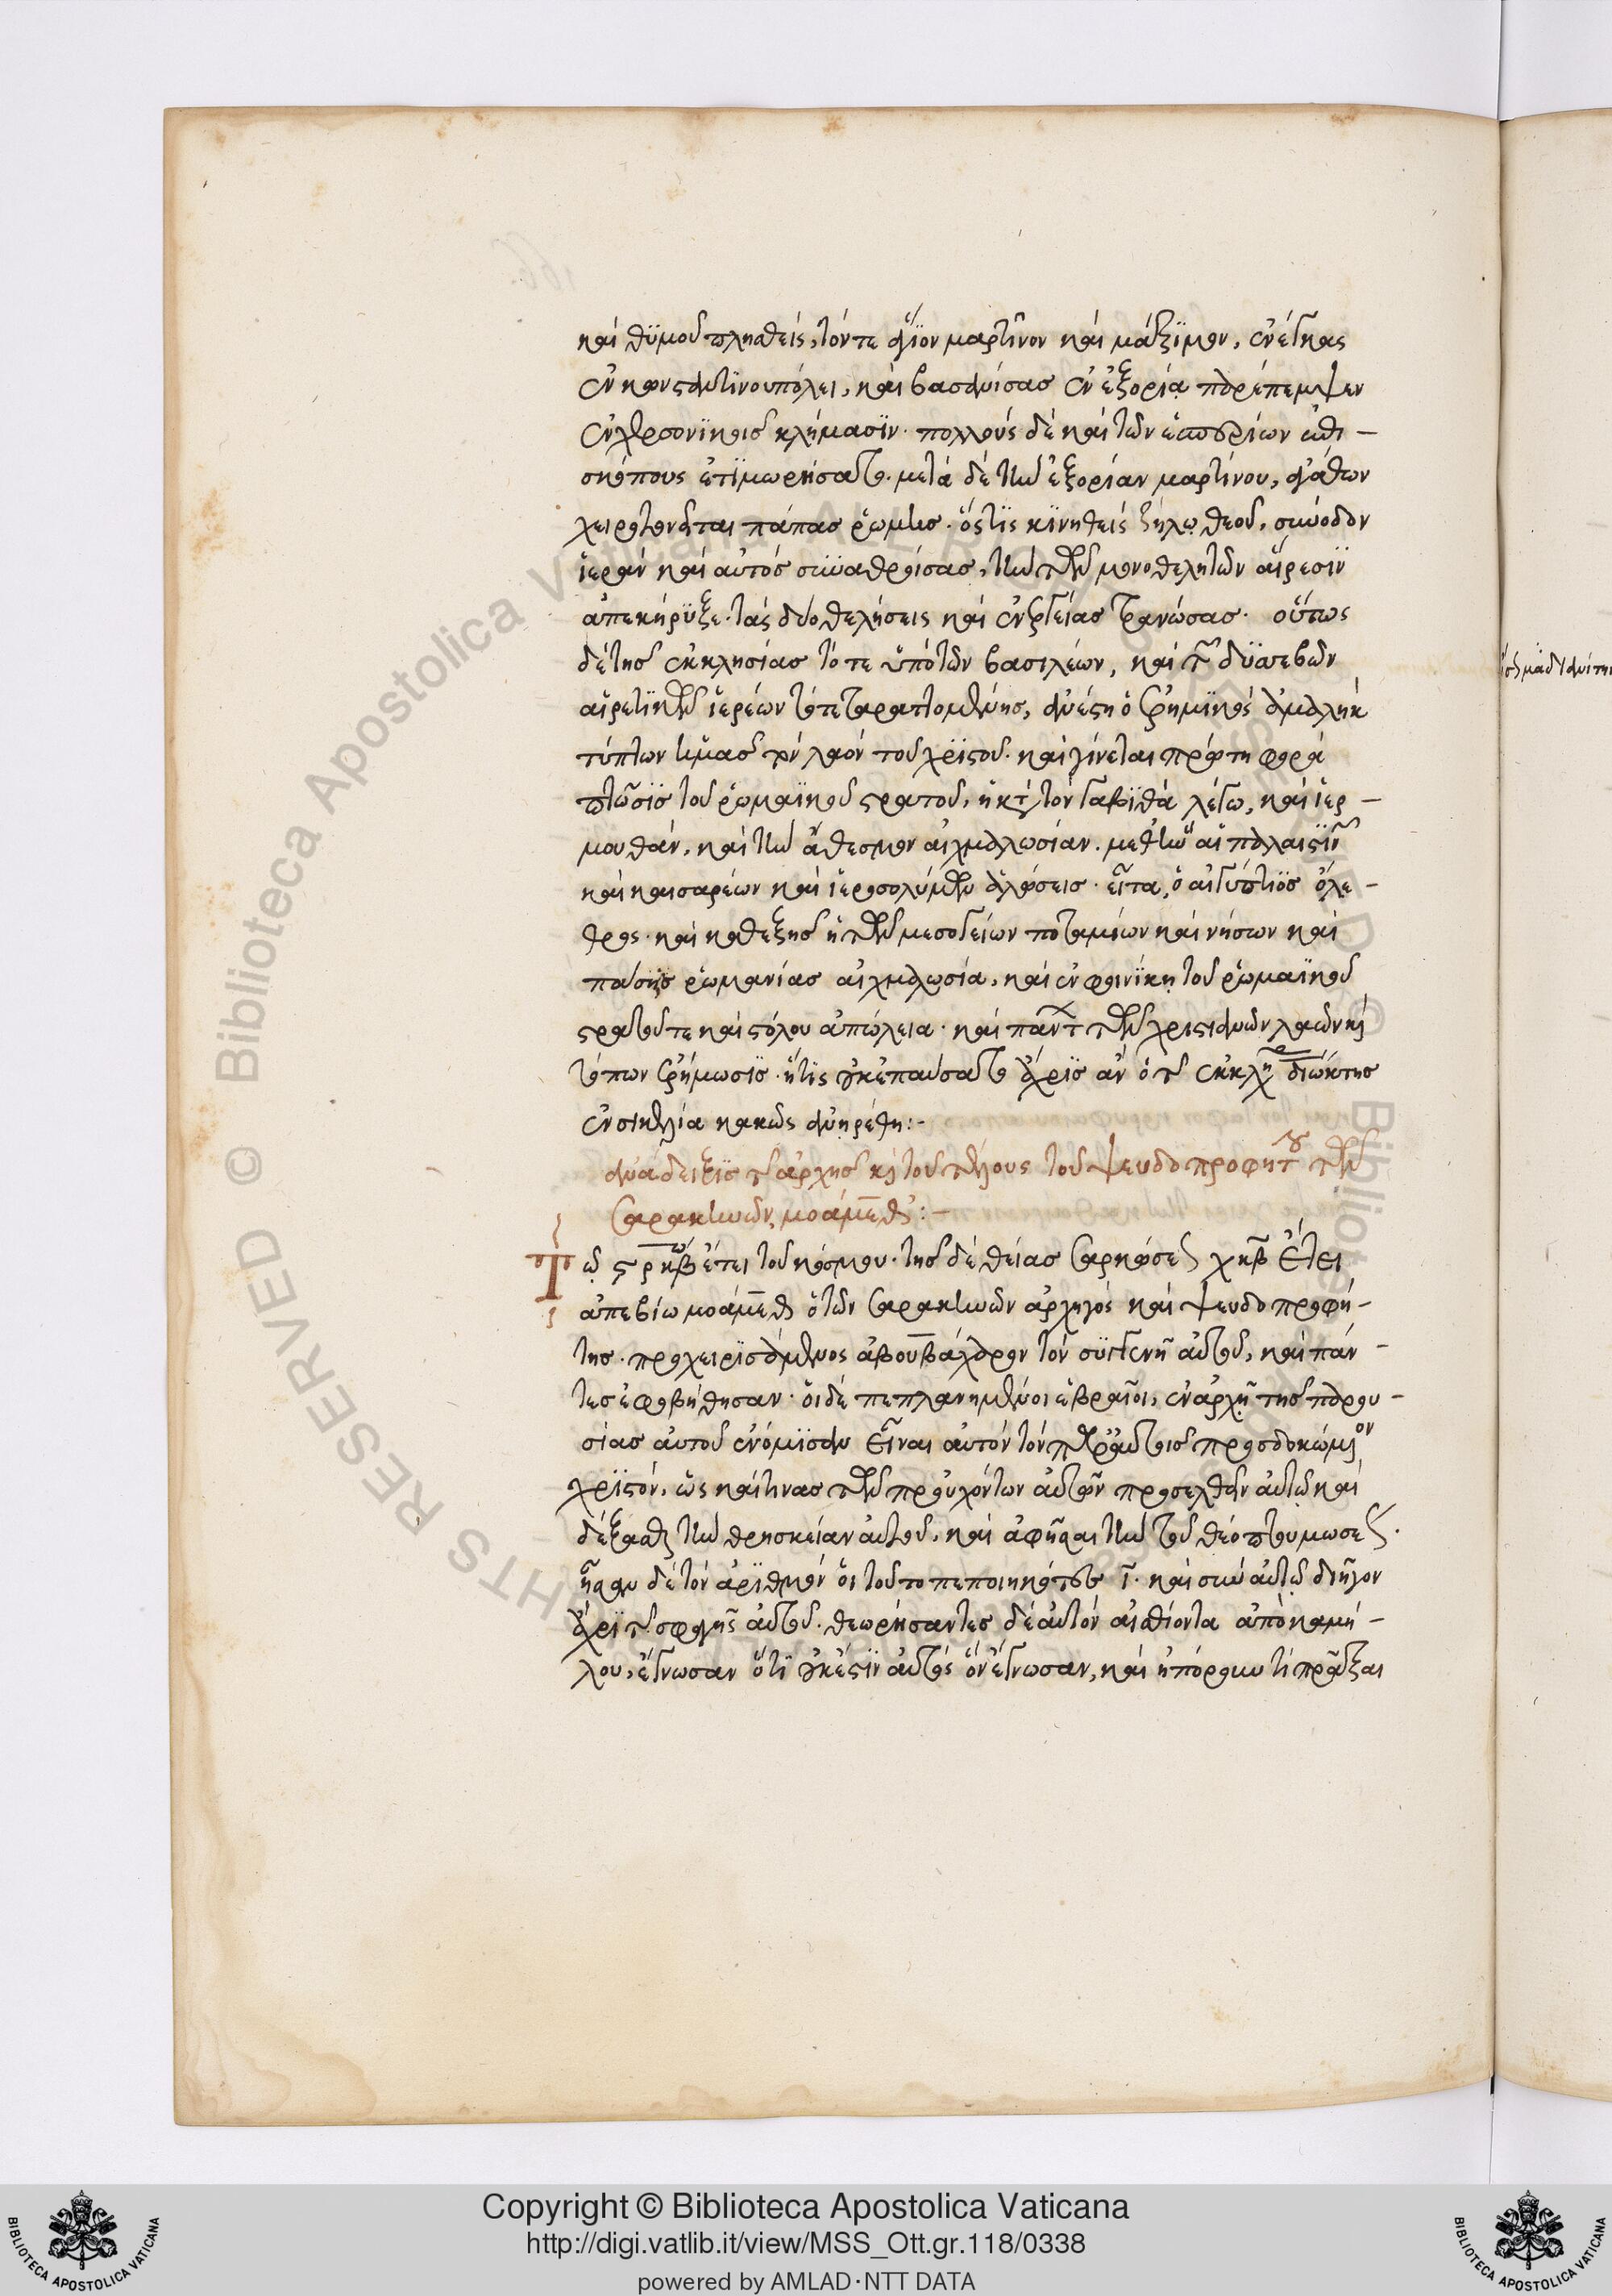 καὶ θϋμοῦ πλησθεὶς, τόν τε ἅγϊον μαρτῖνον καὶ μάξϊμον, ἐνέγκας
ἐν κωνσταντϊνουπόλει, καὶ βασανίσας ἐν ἐξορία παρέπεμψεν
ἐν χερσονϊκοῖς κλήμασϊν· πολλοὺς δὲ καὶ τῶν ἑσπερίων ἐπι-
σκόπους ἐτϊμωρήσατο. μετὰ δὲ τὴν ἐξορίαν μαρτίνου, ἀγάθων
χειροτονεῖται πάπας ῥώμης. ὅστϊς κϊνηθεὶς ζήλω θεοῦ, σύνοδον
ἱερὰν καὶ αὐτὸς συναθροίσας, τὴν τῶν μονοθελητῶν αἵρεσϊν
ἀπεκήρϋξε. τὰς δύο θελήσεις καὶ ἐνεργείας τρανώσας. οὕτως
δὲ τῆς ἐκκλησίας τότε ὑπὸ τῶν βασιλέων, καὶ τῶν δϋσσεβῶν
αἱρετϊκῶν ἱερέων τότε ταραττομένης, ἀνέστη ὁ ἐρημϊκὸς ἀμαλὴκ
τύπτων ἡμᾶς τὸν λαὸν τοῦ χρϊστοῦ. καὶ γίνεται πρώτη φορὰ
πτῶσϊς τοῦ ῥωμαϊκοῦ στρατοῦ, ἡ κατὰ τὸν γαβϊθὰ λέγω, καὶ ἱερ-
μουθὰν, καὶ τὴν ἄθεσμον αἰχμαλωσίαν. μεθ' ἣν αἱ παλαιστϊνῆς
καὶ καισαρέων καὶ ἱεροσολύμων ἁλώσεις. εἶτα, ὁ αἰγύπτϊος ὄλε-
θρος. καὶ καθεξῆς ἡ τῶν μεσογείων ποταμίων καὶ νήσων καὶ
πάσης ῥωμανίας αἰχμαλωσία, καὶ ἐν φοινϊκη τοῦ ῥωμαϊκοῦ
στρατοῦ τε καὶ στόλου ἀπώλεια. καὶ πάντων τῶν χριστιανῶν λαῶν καὶ
τόπων ἐρήμωσϊς. ἥτϊς οὐκ ἐπαύσατο ἄχρϊς ἂν ὁ τῆς ἐκκλησίας διώκτης
ἐν σικελία κακῶς ἀνηρέθη:-
ἀνάδειξϊς τῆς ἀρχῆς καὶ τοῦ τέλους τοῦ ψευδοπροφήτου τῶν
σαρακηνῶν, μοάμεθ:-
Τῶ ςρκβω ἔτει τοῦ κόσμου. τῆς δὲ θείας σαρκώσεως χκβ ἔτει
ἀπεβίω μοάμεθ ὁ τῶν σαρακηνῶν ἀρχηγὸς καὶ ψευδοπροφή-
της. προχειρϊσάμενος ἀβουβάχαρον τὸν συγγενῆ αὐτοῦ, καὶ πάν-
τες ἐφοβήθησαν. οἱ δὲ πεπλανημένοι ἑβραῖοι, ἐν ἀρχῆ τῆς παρου-
σίας αὐτοῦ ἐνόμϊσαν εἶναι αὐτὸν τὸν παρ' αὐτοῖς προσδοκώμενον
χρϊστὸν, ὡς καί τινας τῶν προυχόντων αὐτῶν προσελθεῖν αὐτῶ καὶ
δέξασθαι τὴν θρησκείαν αὐτοῦ, καὶ ἀφῆσαι τὴν τοῦ θεόπτου μωσέως.
ἦσαν δὲ τὸν ἀρϊθμὸν οἱ τοῦτο πεποιηκότες ι. καὶ σὺν αὐτῶ διῆγον
ἄχρϊ τῆς σφαγῆς αὐτοῦ. θεωρήσαντες δὲ αὐτὸν αἰσθίοντα ἀπὸ καμή-
λου, ἔγνωσαν ὅτϊ οὐκ ἔστϊν αὐτὸς ὃν ἔγνωσαν, καὶ ἠπόρουν τί πρᾶξαι
Copyright © Biblioteca Apostolica Vaticana
http://digi.vatlib.it/view/MSS_Ott.gr.118/0338
powered by AMLAD·NTT DATA